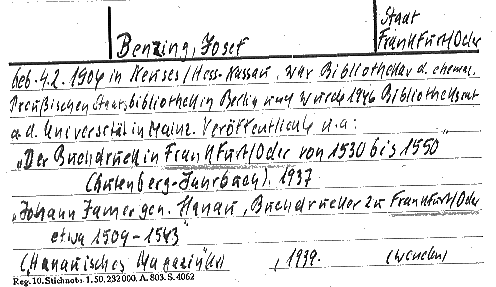 Staat
Benzing, Josef Frankfurt/Oder
geb. 4.2. 1904 in Neuses/Hess-Nassau, war Bibliothekar d. ehemal.
Preußischen Staatsbibliothek in Berlin und wurde 1946 Bibliotheksrat
a.d. Universität in Mainz. Veröffentlichte u.a:
„Der Buchdruck in Frankfurt/Oder von 1530 bis 1550"
(Gutenberg-Jahrbuch). 1937
„Johann Jamer gen. Hanau, Buchdrucker zu Frankfurt/Oder
etwa 1509-1543"
(„Hanauisches Magazin" , 1939.
Reg. 10. Stichnobs. 1. 50. 232 000. A. 803. S. 4062